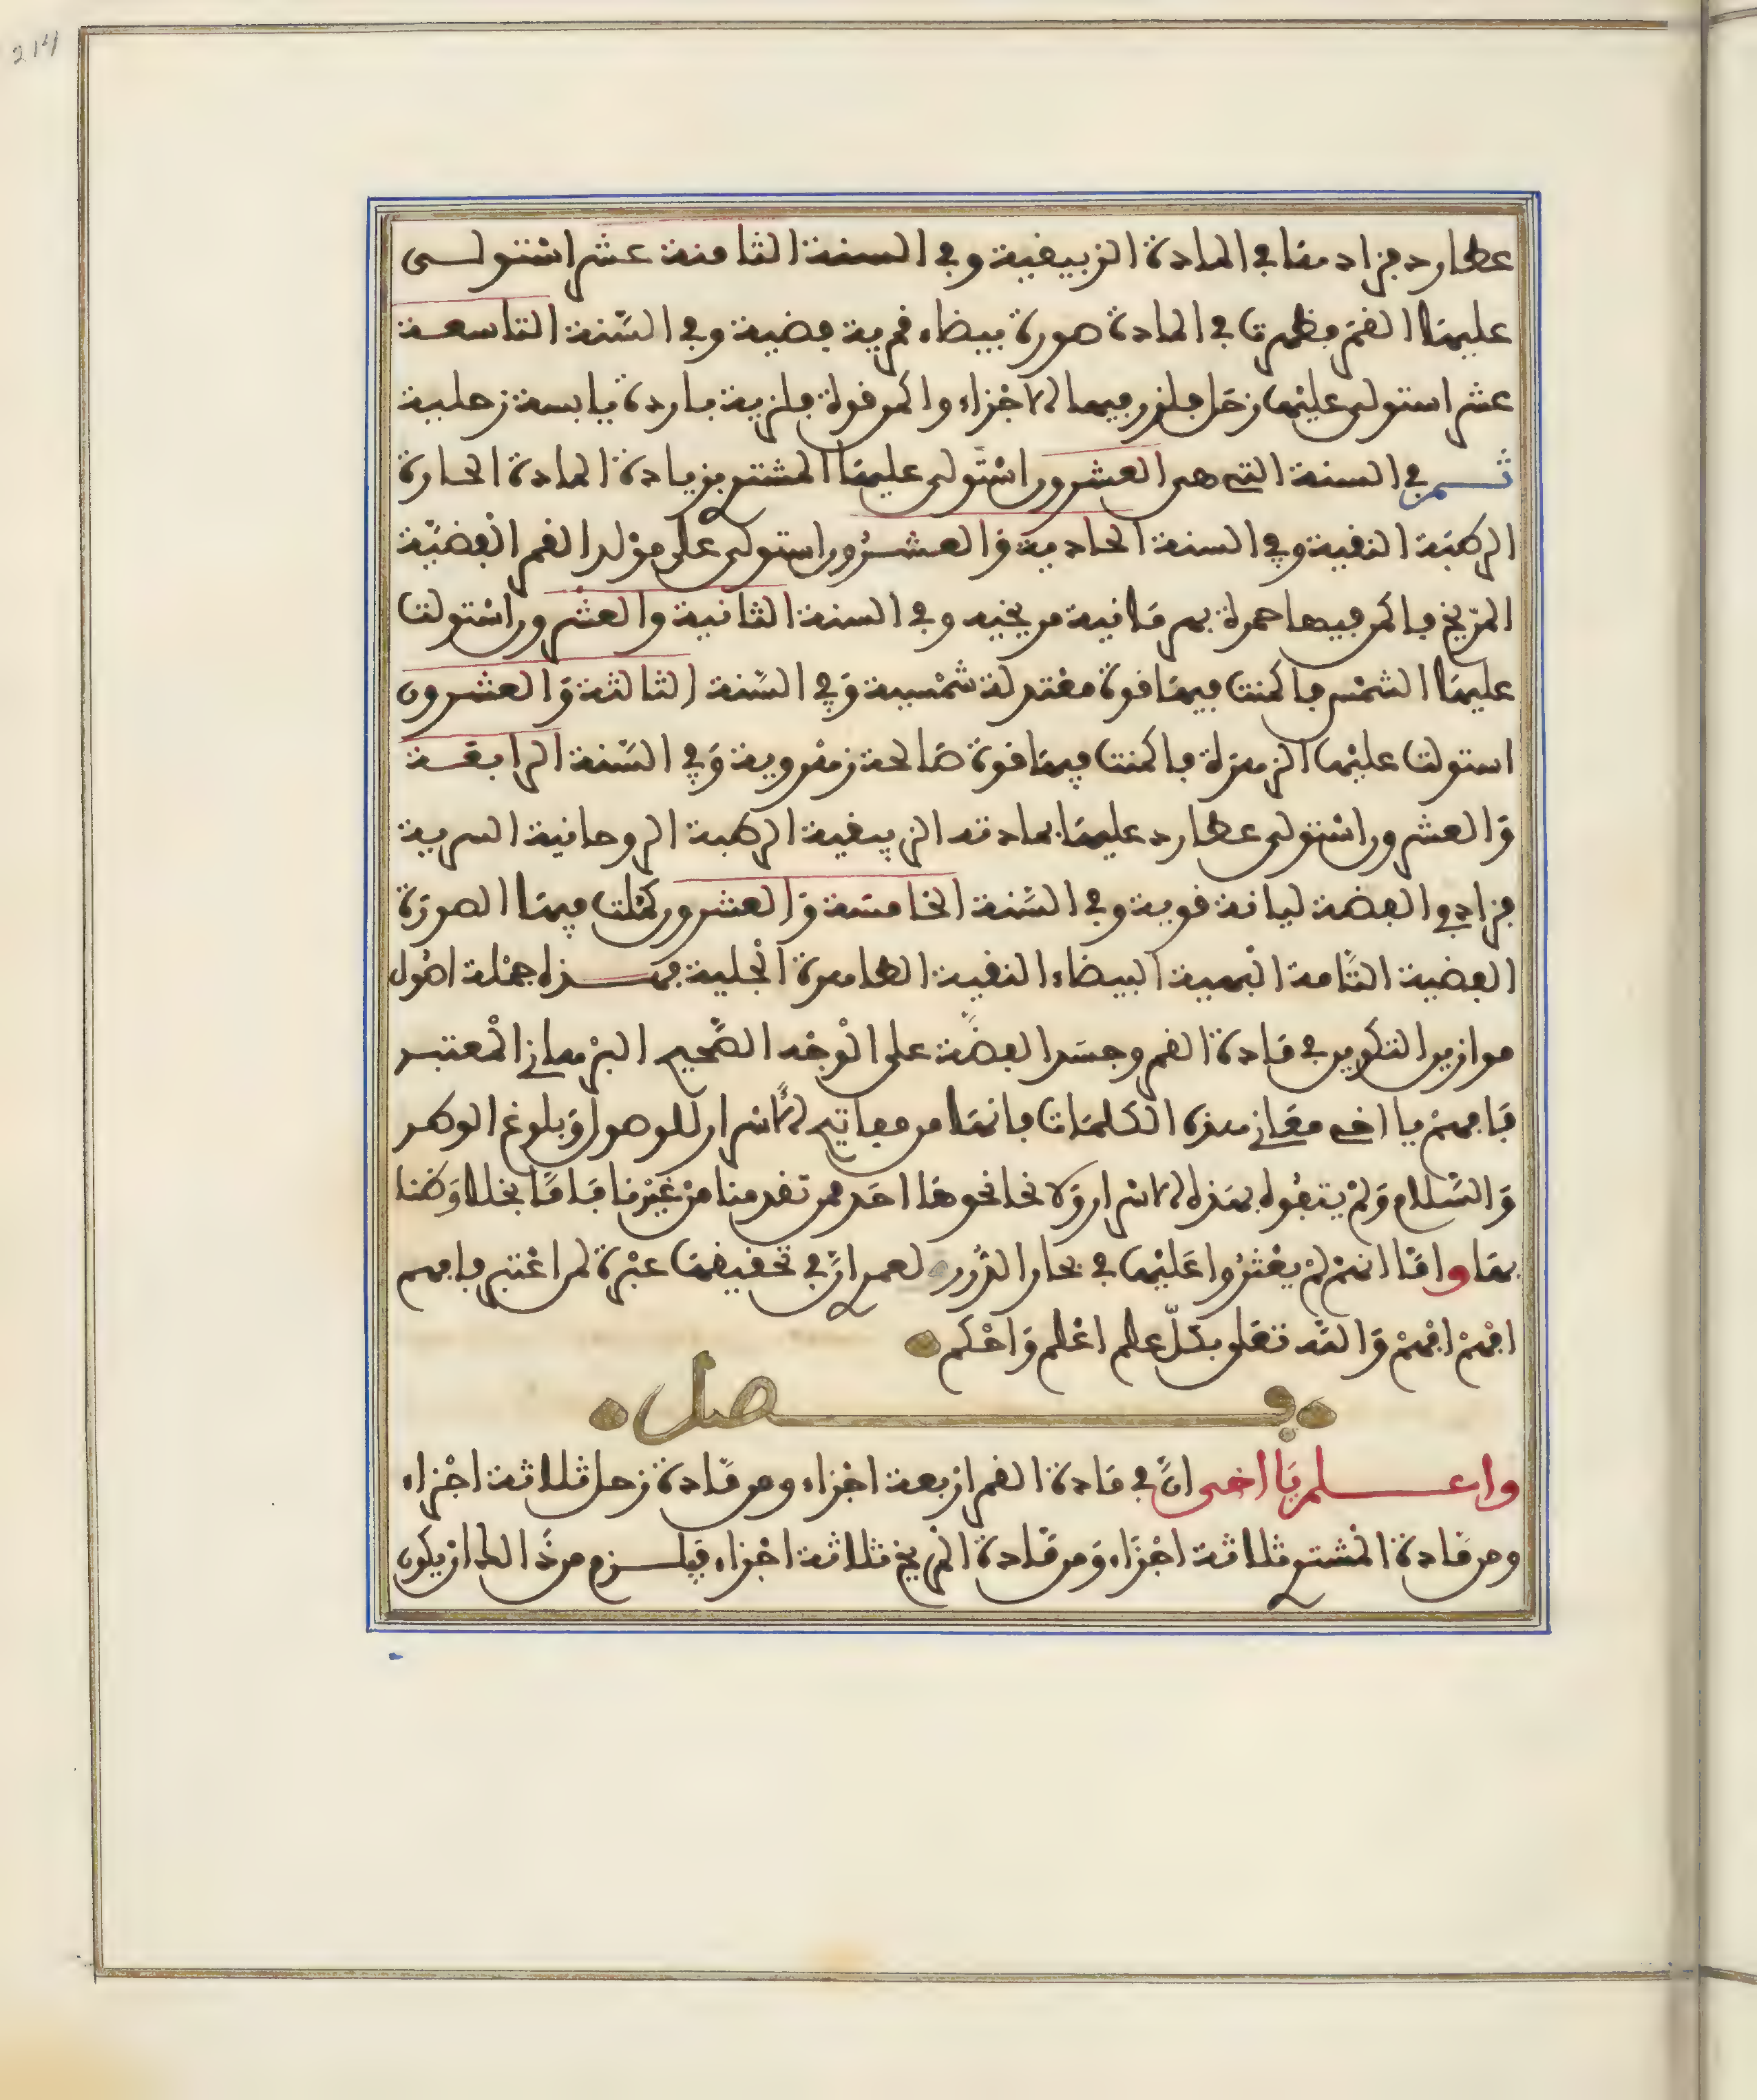 214
عطارد فزاد منها في المادة الزيبقية وفي السنة الثامنة عشر استولى
عليها القمر فظهرت في المادة صورة بيضاء قمرية فضية وفي السّنة التاسعة
عشر استولى عليها زحل فلزز فيها الاجزاء واكمن قوة فلزية باردة يابسة زحلية
ثم في السنة التي هي العشرون استولى عليها المشتري بزيادة المادة الحارة
الرطبة النقية وفي السنة الحادية والعشرون استولى على مولد القمر الفضيّة
المرّيخ فاكمن فيها حمرة بهرمانية مريخيه وفي السنة الثانية والعشرون استولت
عليها الشمس فاكمنت فيها قوة معتدلة شمسية وَفي السّنة الثالثة وَالعشرون
استولت عليها الزهرة فاكمنت فيها قوة صَالحة زهروية وَفي السّنة الرابعَة
وَالعشرون استولى عطارد عليها بمادته الزيبقية الرطبة الروحانية السرية
فزاد في الفضة ليانة قوية وفي السّنة الخامسَة وَالعشرون كملت فيها الصورَة
الفضية التّامة البهية البيضاء النقية الطاهرة الجلية فهذه جملة اصُول
موازين التكوين في مَادة القمر وجسَد الفضّة على الوَجه الصّحيح البرهاني المعتبر
فَافهم يا اخي معَاني هذه الكلمَات فانهَا من مفاتيح الاسرار للوصول وَبلوغ الوطر
وَالسَّلام وَلمْ يتفُوه بهَذه الاسرار وَلا نحا نحوهَا احَد ممن تقدمنا منْ غَيْرنا فَامّا بخلا وَضنا
بهَا وامَّا انهمْ لمْ يعْثرُوا عَليْها في بحار الدُّرر ولعمري انّ في تحقيقهَا عبْرَة لمن اعْتبر فافهم
افهمْ افهمْ وَاللّه تعَلى بكلّ علم اعْلم وَاحْكم
فصل
واعلم يَا اخي انّ في مَادة القمر اربعة اجْزاء ومن مَّادة زحل ثلاثة اجْزاء
ومن مَادة المُشتري ثلاثة اجْزاء وَمن مَّادة المْريخ ثلاثة اجْزاء فيَلزم من هذا ان يكون